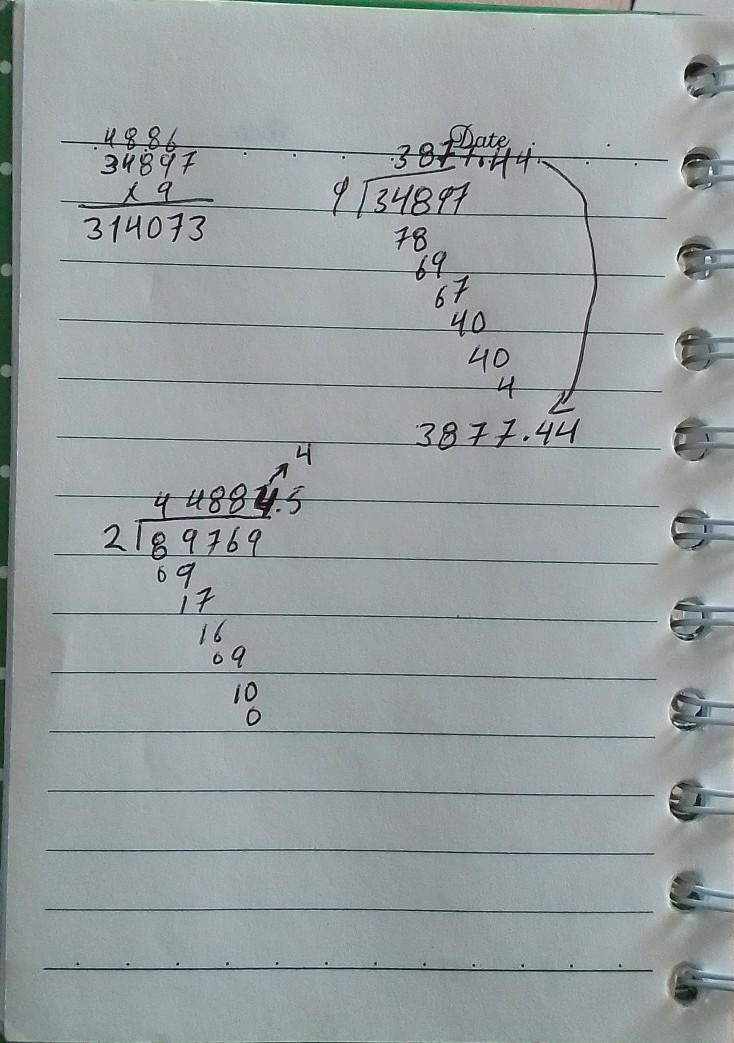 4886
34897
x 9
314073
Date
3877.44
9 34897
78
69
67
40
40
4
3877.44
4
44884.5
2 89769
09
17
16
09
10
0